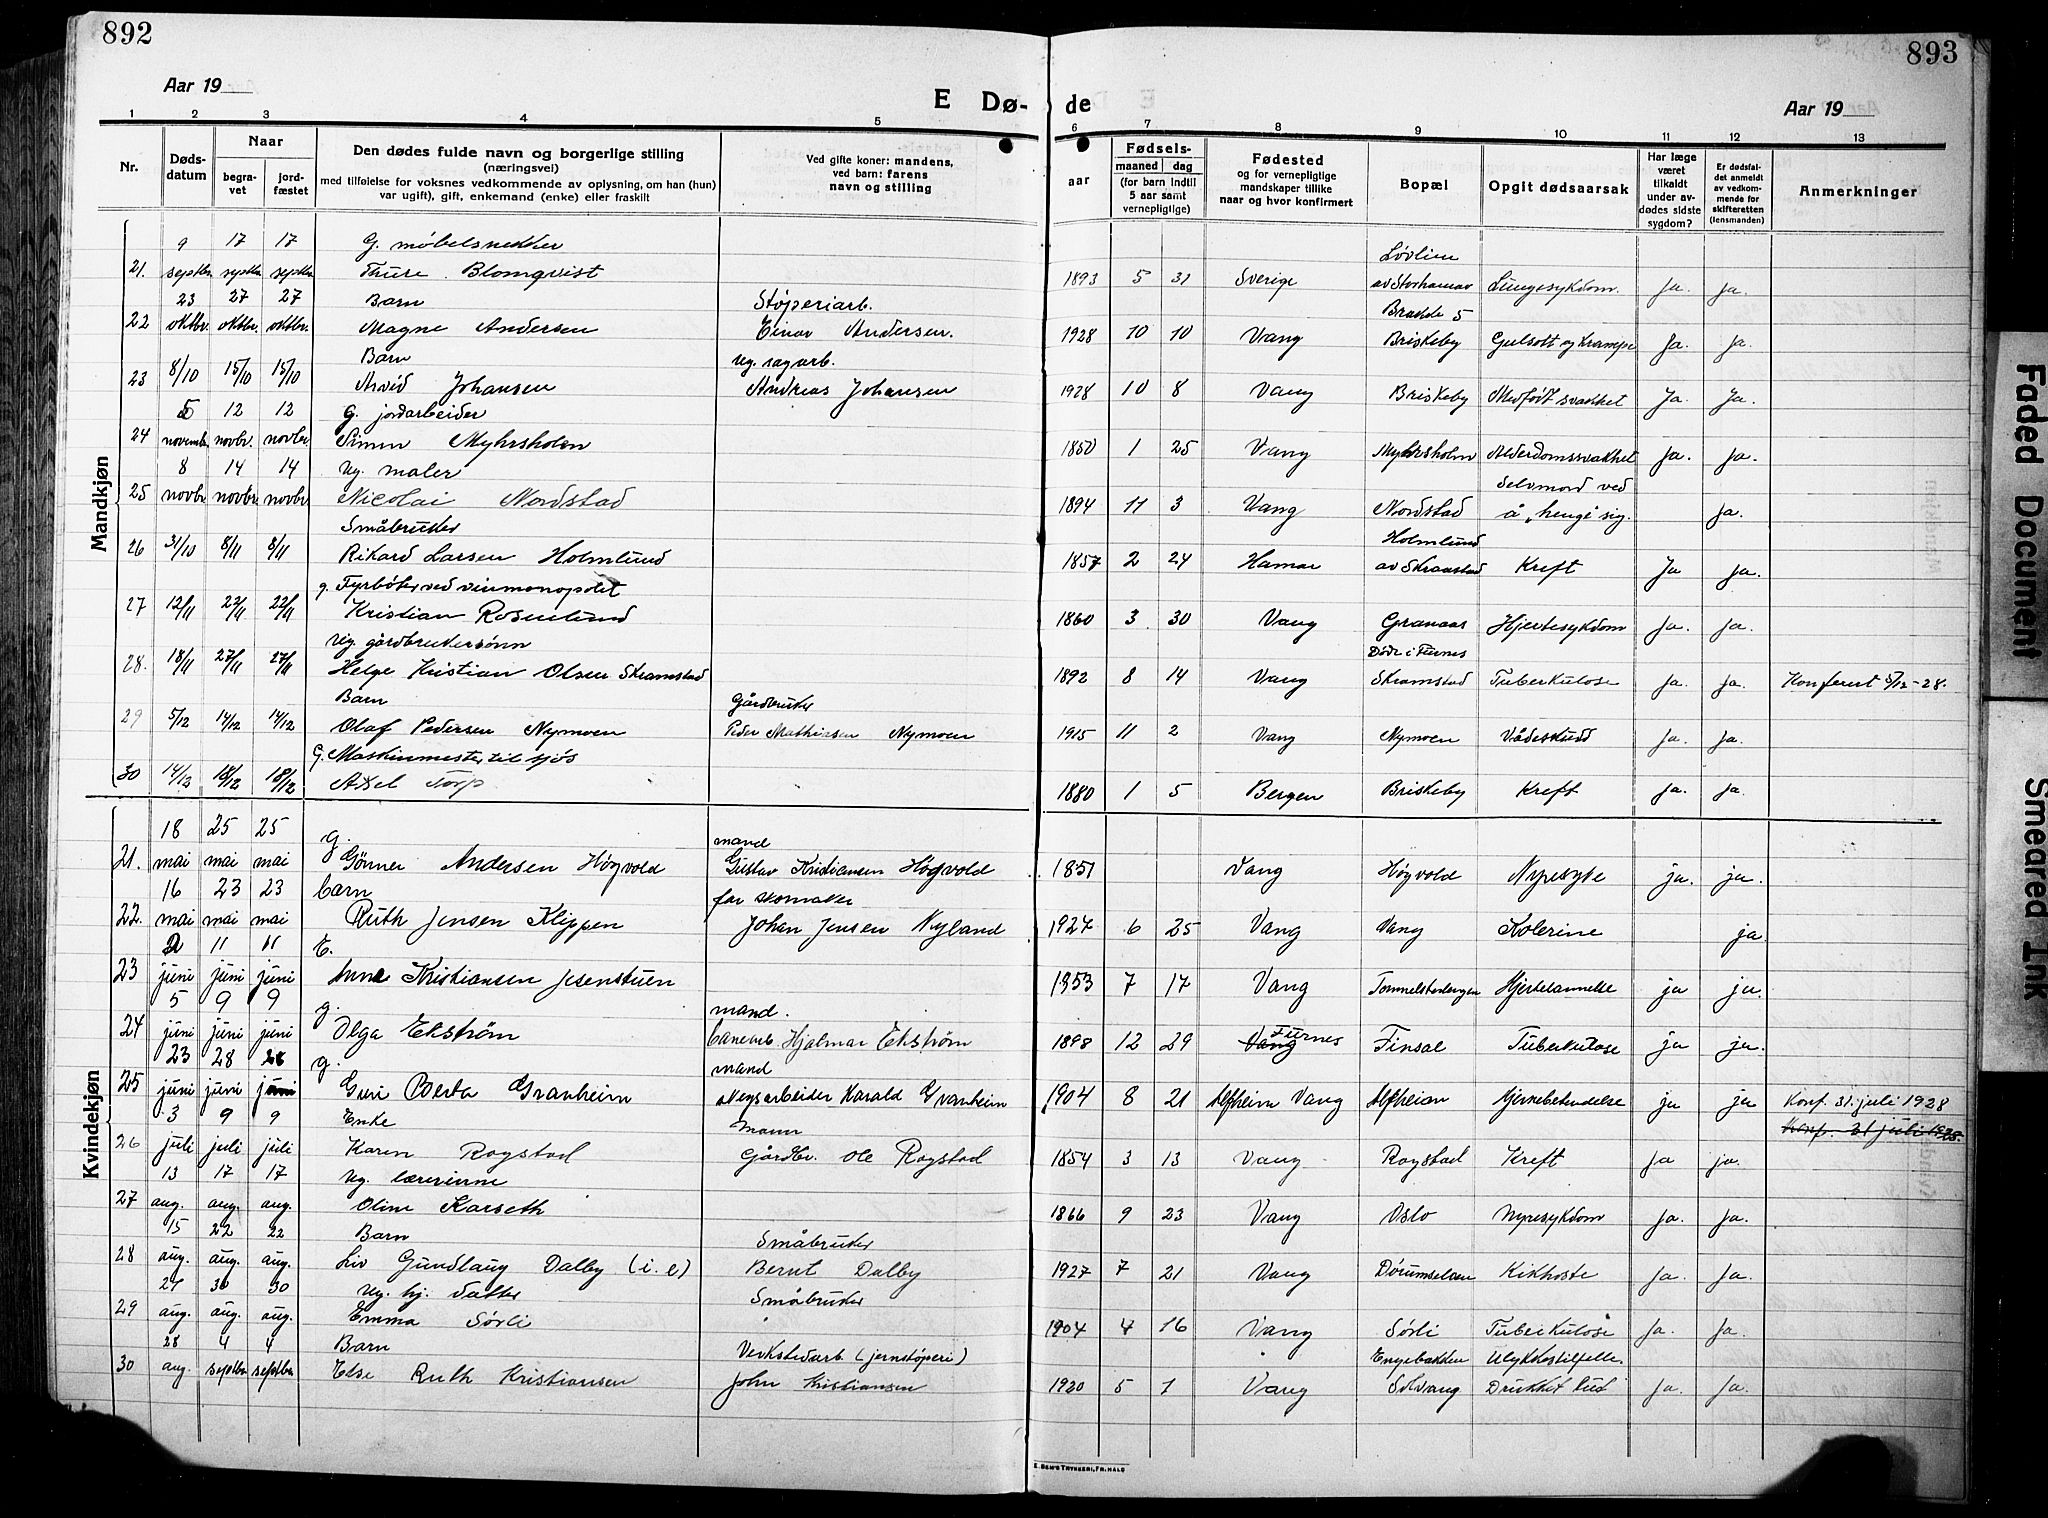 892
893
Aar 19
E Dø-
de
Aar 19
1 2 3 4 5 6 7 8 9 10 11 12 13
Nr.
Døds-
datum
Naar
begra-
vet
jord-
fæstet
Den dødes fulde navn og borgerlige stilling
(næringsvei)
med tilføielse for voksnes vedkommende av oplysning, om han (hun)
var ugift), gift, enkemand (enke) eller fraskilt
Ved gifte koner: mandens,
ved barn: farens
navn og stilling
Fødsels-
aar
maaned dag
(for barn indtil
5 aar samt
vernepligtige)
Fødested
og for vernepligtige
mandskaper tillike
naar og hvor konfirmert
Bopæl
Opgit dødsaarsak
Har læge
været
tilkaldt
under av-
dødes sidste
sygdom?
Er dødsfal-
det anmeldt
av vedkom-
mende for
skifteretten
(lensmanden)
Anmerkninger
Mandkjøn
9 17 17 G. møbelsnekker Løvlien
21. septbr. septbr. septbr. Ture Blomqvist 1893 5 31 Sverige av Storhamar Lungesykdom. Ja. Ja.
23 27 27 Barn Støperiarb. Brakke 5
22 oktbr. oktbr. oktbr. Magne Andersen Einar Andersen. 1928 10 10 Vang Briskeby Gulsott og krampe Ja. Ja.
Barn ug. sagarb.
23 8/10 15/10 15/10 Arvid Johansen Andreas Johansen 1928 10 8 Vang Briskeby Medfødt svakhet Ja. Ja.
5 12 12 G. jordarbeider
24 novembr. novbr. novbr. Simen Myhrsholm 1850 1 25 Vang Myhrsholm Alderdomssvakhet Ja. Ja.
8 14 14 Ug. maler Selvmord ved
25 novbr. novbr. novbr. Nicolai Nordstad 1894 11 3 Vang Nordstad å „henge" sig. Ja.
Småbruker Holmlund
26 31/10 8/11 8/11 Rikard Larsen Holmlund 1857 2 24 Hamar av Skraastad Kreft Ja Ja.
g. Fyrbøter ved vinmonopolet
27 12/11 22/11 22/11 Kristian Rosenlund 1860 3 30 Vang Granaas Hjertesykdom Ja. Ja.
Ug. gårdbrukersønn Døde i Furnes
28. 18/11 27/11 27/11 Helge Kristian Olsen Skramstad 1892 8 14 Vang Skramstad Tuberkulose Ja. Ja. Konferert 5/12-28.
Barn Gårdbruker
29 5/12 14/12 14/12 Olaf Pedersen Nymoen Peder Mathiasen Nymoen 1915 11 2 Vang Nymoen Vådeskudd Ja. Ja.
G. Maskinmester til sjøs
30 14/12 18/12 18/12 Axel Torp 1880 1 5 Bergen Briskeby Kreft Ja. Ja.
Kvindekjøn
18 25 25 g. mand
21. mai mai mai Gønner Andersen Høgvold Gustav Kristiansen Høgvold 1851 Vang Høgvold Nyresyke ja. ja.
16 23 23 barn far skomaker
22. mai mai mai Ruth Jensen Klippen Johan Jensen Nyland 1927 6 25 Vang Vang Kolerine ja
2 11 11 E.
23 juni juni juni Anne Kristiansen Jesenstuen 1853 7 17 Vang Hjertelammelse ja ja.
5 9 9 g. mand.
24 juni juni juni Olga Ekstrøm banearb. Hjalmar Ekstrøm 1898 12 29 Vang Furnes Finsal Tuberkulose ja ja.
23 28 28 g. mand
25 juni juni juni Guri Berta Granheim Vegsarbeider Harald Granheim 1904 8 21 Alfheim Vang Alfheim Hjernebetendelse ja ja Konf. 31. juli 1928
3 9 9 Enke Mann Konf. 31 juli 1928.
26 juli juli juli Karen Rogstad Gårdbr. Ole Rogstad 1854 3 13 Vang Rogstad Kreft Ja ja.
13 17 17 Ug. lærerinne
27 aug. aug. aug. Oline Karseth 1866 9 23 Vang Oslo Nyresykdom Ja. Ja.
15 22 22 Barn Småbruker
28 aug. aug. aug. Liv Gundlaug Dalby (i. e) Bernt Dalby 1927 7 21 Vang Kikhoste Ja. Ja.
30 30 Ug. hj. datter Småbruker
29 aug. aug. aug. Emma Sørli 1904 4 16 Vang Sørli Tuberkulose Ja. Ja.
28 4 4 Barn Verkstedarb. (jernstøperi) Engebakken Ulykkestilfelle.
30 aug. septbr. septbr. Else Ruth Kristiansen John Kristiansen 1920 5 1 Vang Solvang Drukket lut Ja. Ja.
E. SEM'S TRYKKERI, FR.HALD
Faded Document
Smeared Ink